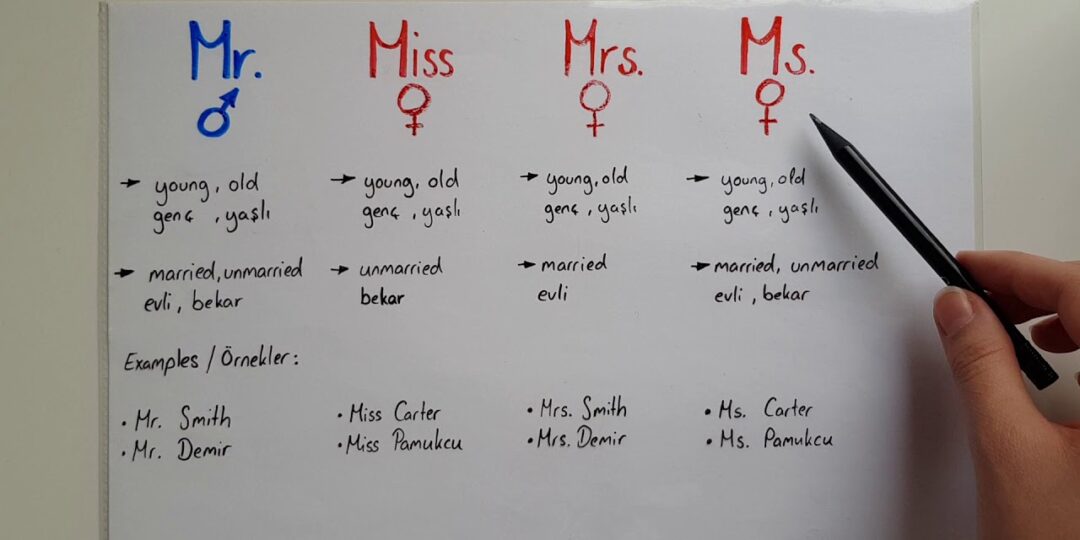 Mr.
Miss
Mrs.
Ms.
→ young, old
genç, yaşlı
→ young, old
genç, yaşlı
→ young, old
genç, yaşlı
→ young, old
genç, yaşlı
→ married, unmarried
evli, bekar
→ unmarried
bekar
→ married
evli
→ married, unmarried
evli, bekar
Examples / Örnekler:
• Mr. Smith
• Mr. Demir
• Miss Carter
• Miss Pamukcu
• Mrs. Smith
• Mrs. Demir
• Ms. Carter
• Ms. Pamukcu